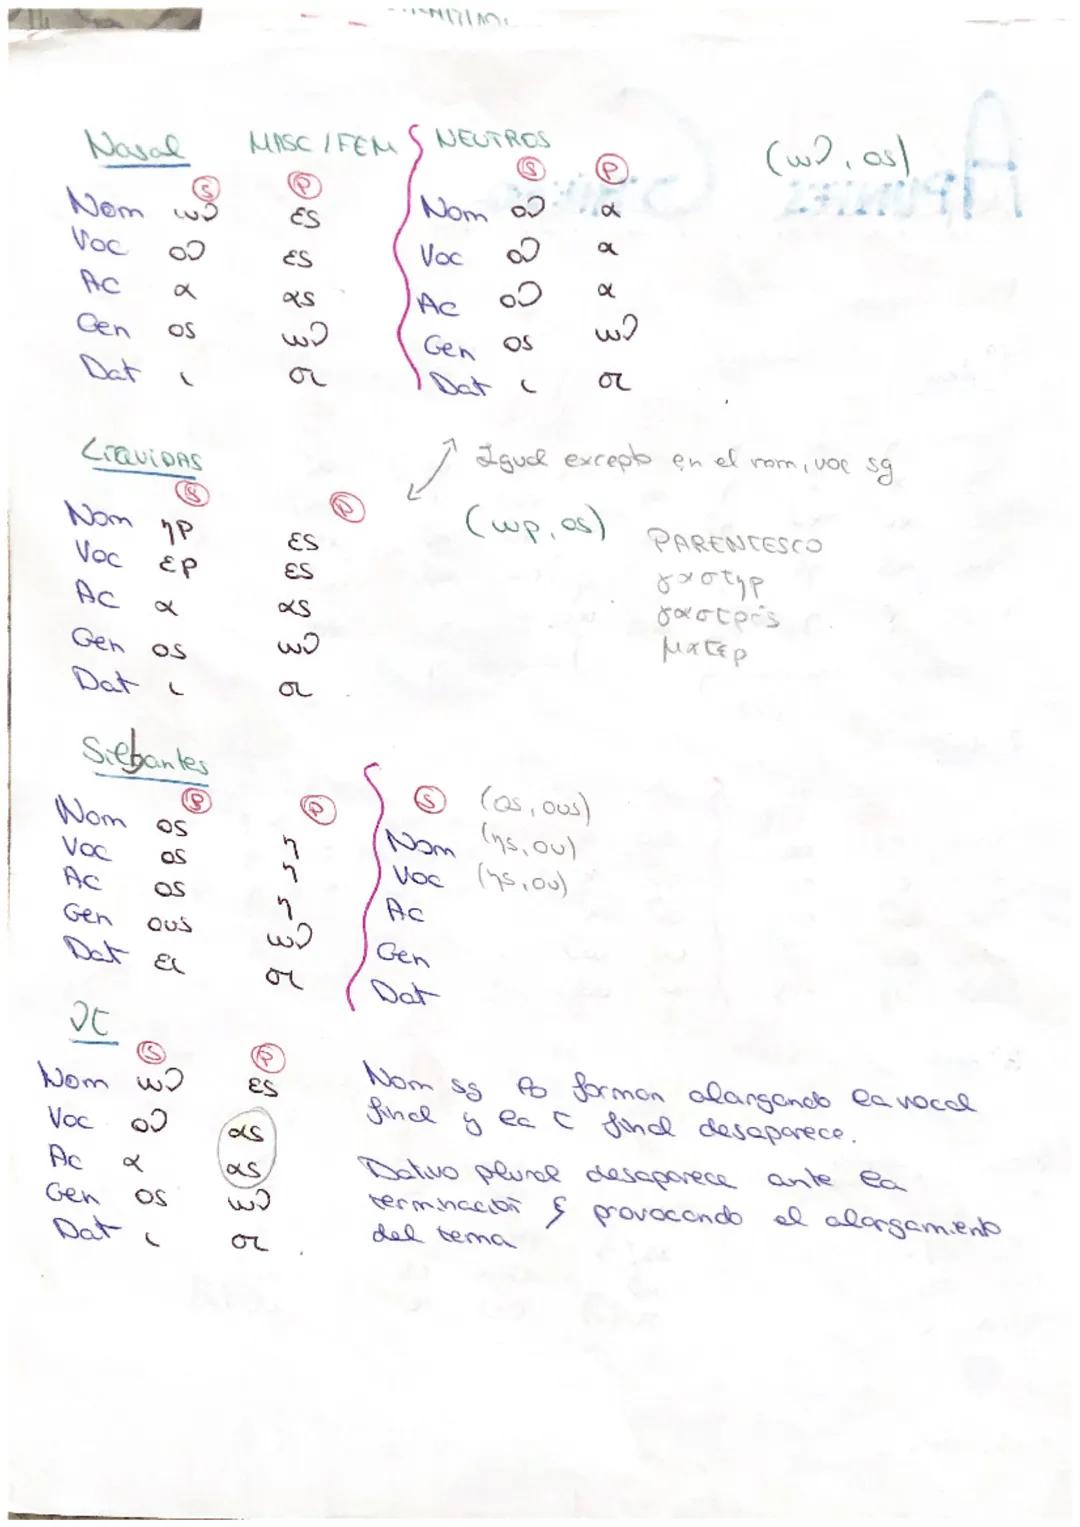 Nasal MASC / FEM NEUTROS (ων, ος)
S P S P
Nom ων ες Nom ον α
Voc ον ες Voc ον α
Ac α ας Ac ον α
Gen ος ων Gen ος ων
Dat ι σι Dat ι σι
LIQUIDAS
Igual excepto en el nom, voc sg
S P
(ωρ, ος)
Nom ηρ ες
Voc ερ ες
Ac α ας
Gen ος ων
Dat ι σι
PARENTESCO
γαστηρ
γαστρός
ματερ
Silbantes
S P S (ος, ους)
Nom ος η Nom (ης, ου)
Voc ος η Voc (ης, ου)
Ac ος η Ac
Gen ους ων Gen
Dat ει σι Dat
ντ
S P
Nom ων ες
Voc ον ας
Ac α ας
Gen ος ων
Dat ι σι
Nom sg formon alargando la vocal
final y la τ final desaparece.
Dativo plural desaparece ante la
terminación ς provocando el alargamiento
del tema